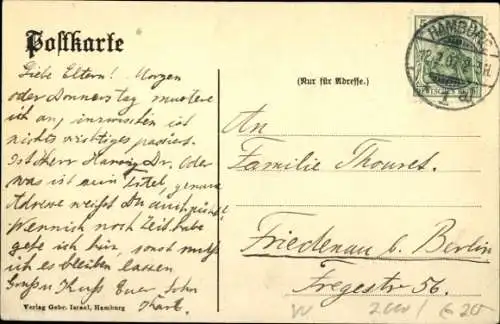 Postkarte
Liebe Eltern! Morgen
oder Donnerstag mustere
ich an, inzwischen ist
nichts wichtiges passiert.
Ist Herr Dr. oder
was ist sein Titel, genaue
Adresse weisst Du auch
Wenn ich noch Zeit habe
gehe ich hin, sonst muss
ich es bleiben lassen
Gruss u Kuss Euer Sohn
Karl.
Verlag Gebr. Israel, Hamburg
HAMBURG
(Nur für Adresse.)
An
Familie Thouret.
Friedenau b. Berlin
Fregestr 56.